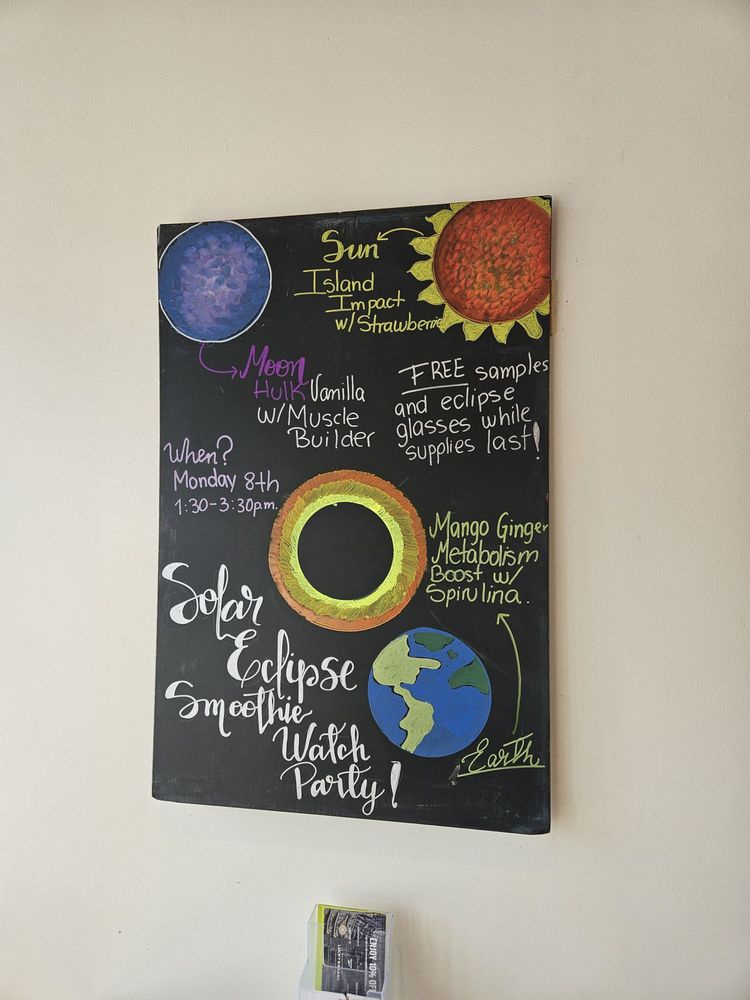 Sun
Island
Impact
w/Strawberries
Moon
Hulk Vanilla
w/Muscle
Builder
FREE samples
and eclipse
glasses while
supplies last!
When?
Monday 8th
1:30-3:30p.m.
Mango Ginger
Metabolism
Boost w/
Spirulina.
Earth
Solar
Eclipse
Smoothie
Watch
Party!
ENJOY 10% OF